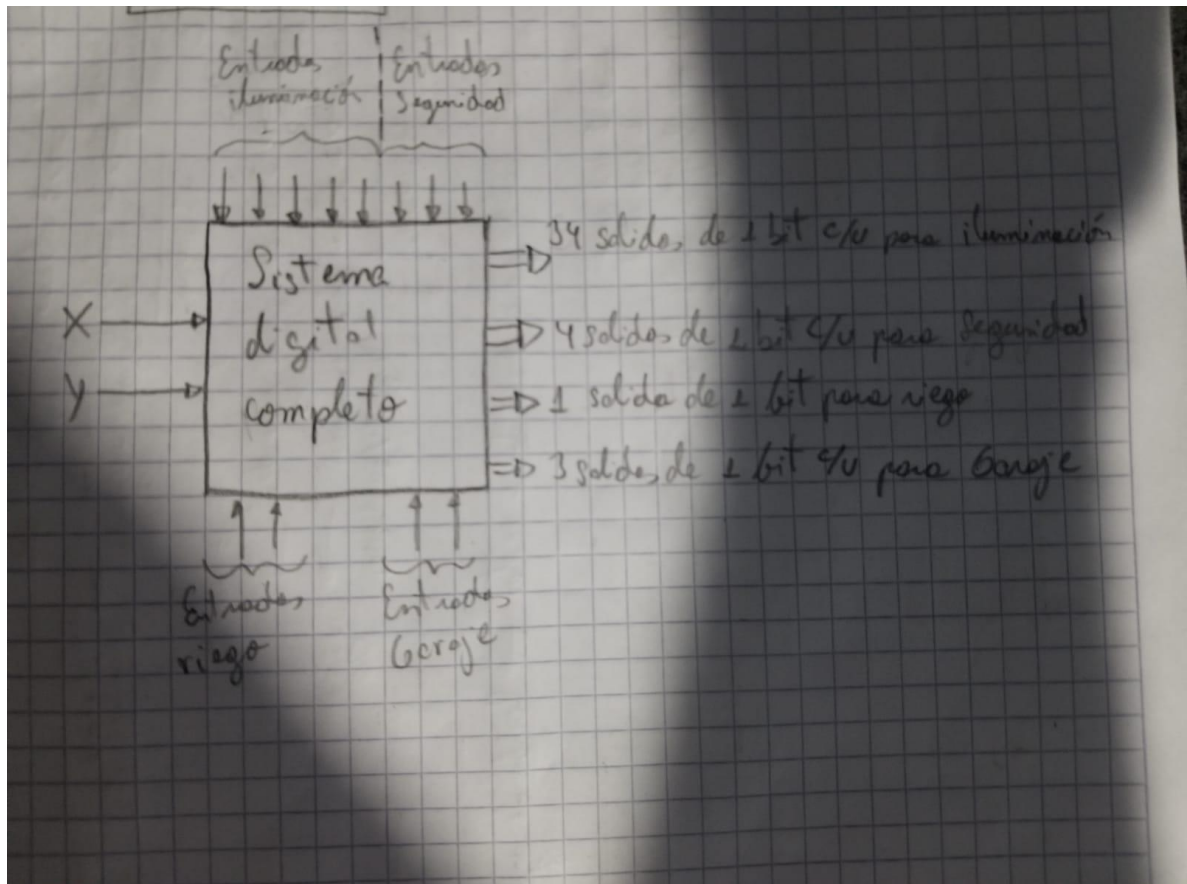 Entradas
iluminación
Entradas
Seguridad
Sistema
digital
completo
X
Y
34 salidas de 1 bit c/u para iluminación
4 salidas de 1 bit c/u para Seguridad
1 salida de 1 bit para riego
3 salidas de 1 bit c/u para Garaje
Entradas
riego
Entradas
Garaje